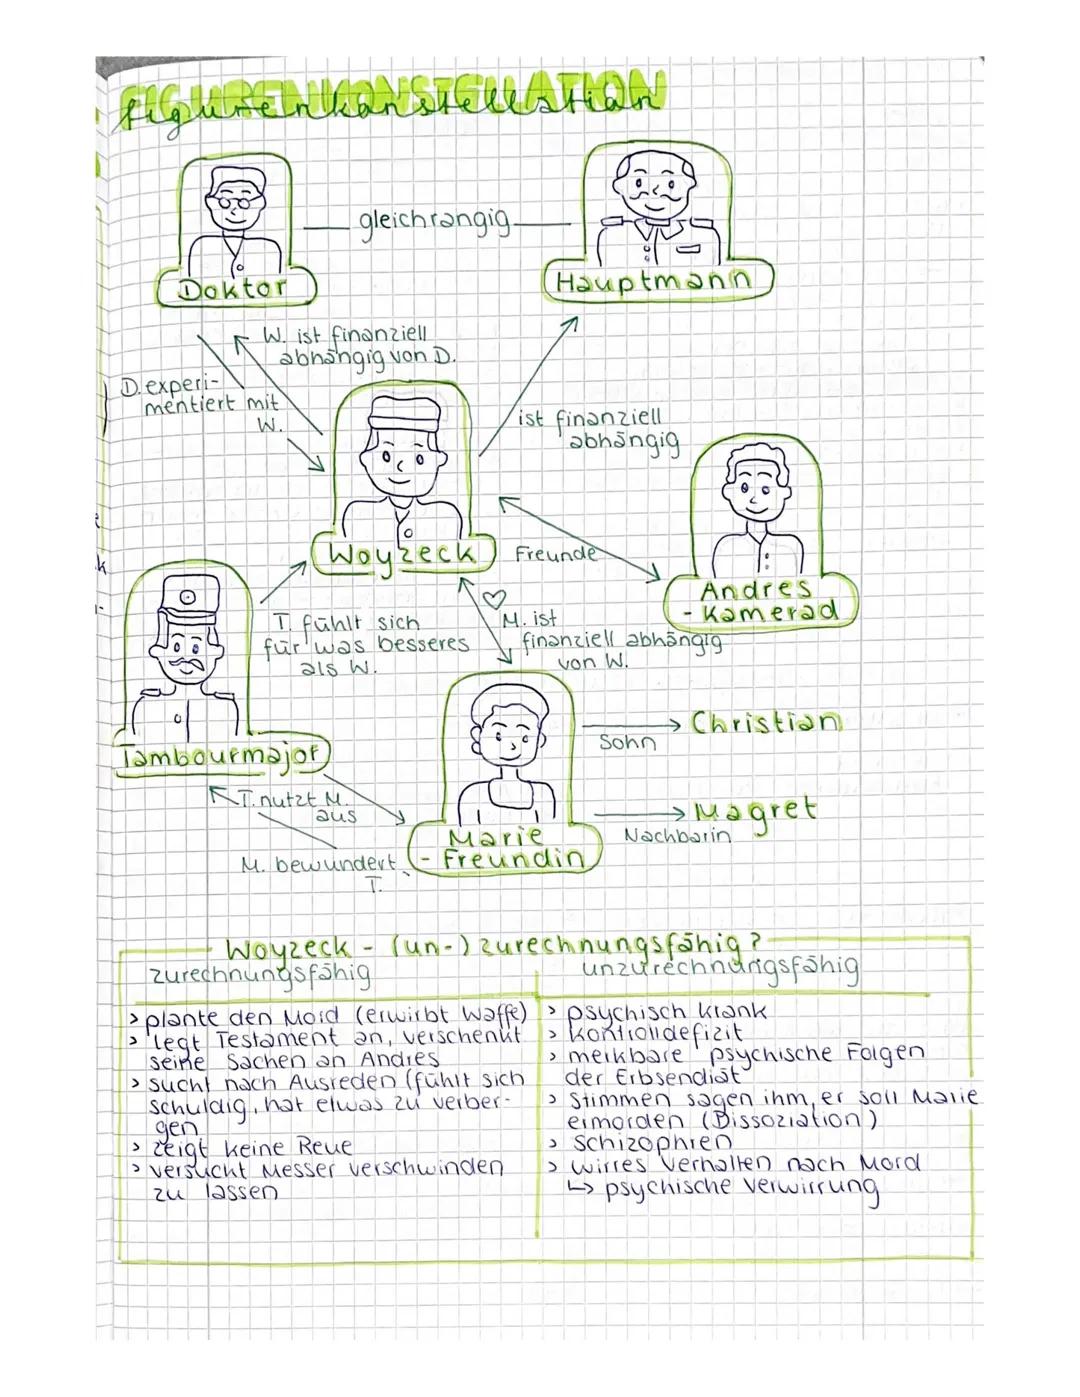 FIGURENKONSTELLATION
figurenkonstellation
gleichrangig
Doktor
Hauptmann
W. ist finanziell
abhängig von D.
D. experi-
mentiert mit
W.
ist finanziell
abhängig
Woyzeck
Freunde
Andres
- Kamerad
T. fühlt sich
für was besseres
als W.
M. ist
finanziell abhängig
von W.
Tambourmajor
Sohn
Christian
T. nutzt M.
aus
Magret
Nachbarin
Marie
- Freundin
M. bewundert
T.
Woyzeck - (un-) zurechnungsfähig?
zurechnungsfähig
> plante den Mord (erwirbt Waffe)
> legt Testament an, verschenkt
seine Sachen an Andres
> sucht nach Ausreden (fühlt sich
schuldig, hat etwas zu verber-
gen
> zeigt keine Reue
> versucht Messer verschwinden
zu lassen
unzurechnungsfähig
> psychisch krank
> Kontrolldefizit
> merkbare psychische Folgen
der Erbsendiät
> Stimmen sagen ihm, er soll Marie
ermorden (Dissoziation)
> Schizophren
> wirres Verhalten nach Mord
↳ psychische Verwirrung